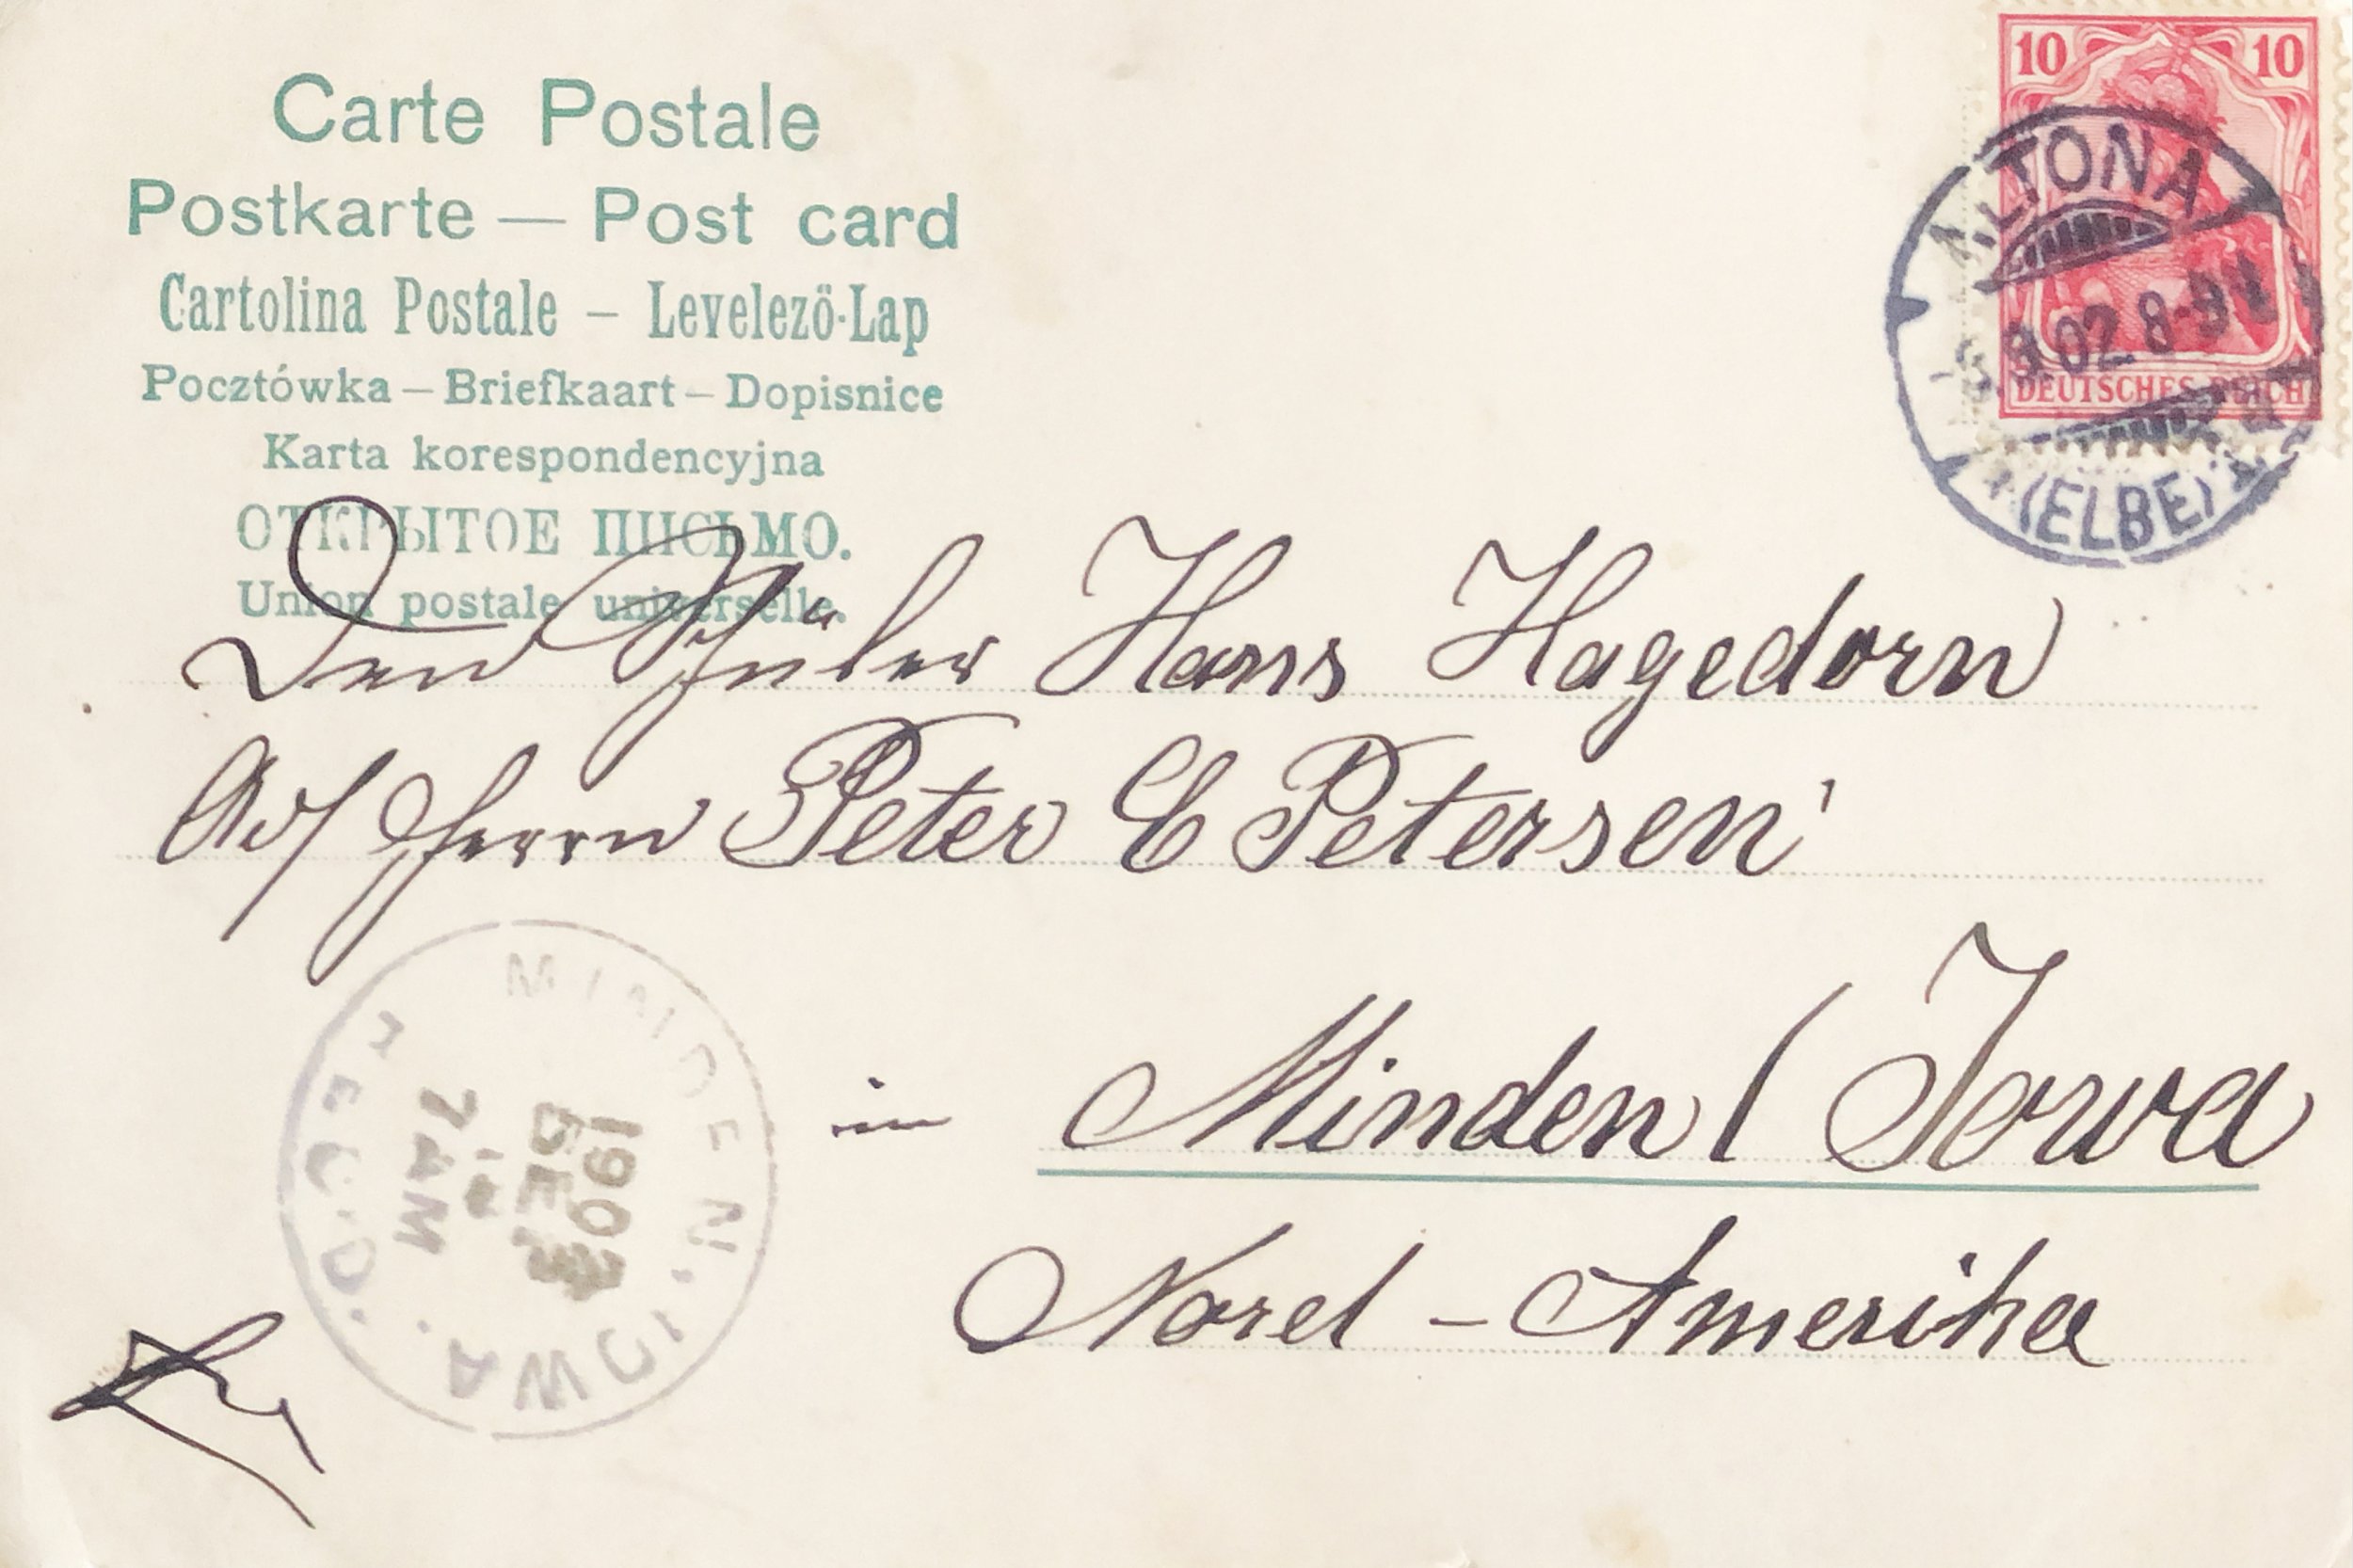 Carte Postale
Postkarte — Post card
Cartolina Postale – Levelező-Lap
Pocztówka – Briefkaart – Dopisnice
Karta korespondencyjna
ОТКРЫТОЕ ПИСЬМО.
Union postale universelle.
10 10
DEUTSCHES REICH
ALTONA
9.02 8-9
(ELBE)
Den Schüler Hans Hagedorn
Herrn Peter C Petersen
in Minden (Iowa
Nord-Amerika
MINDEN, IOWA.
REC'D.
190
7 AM